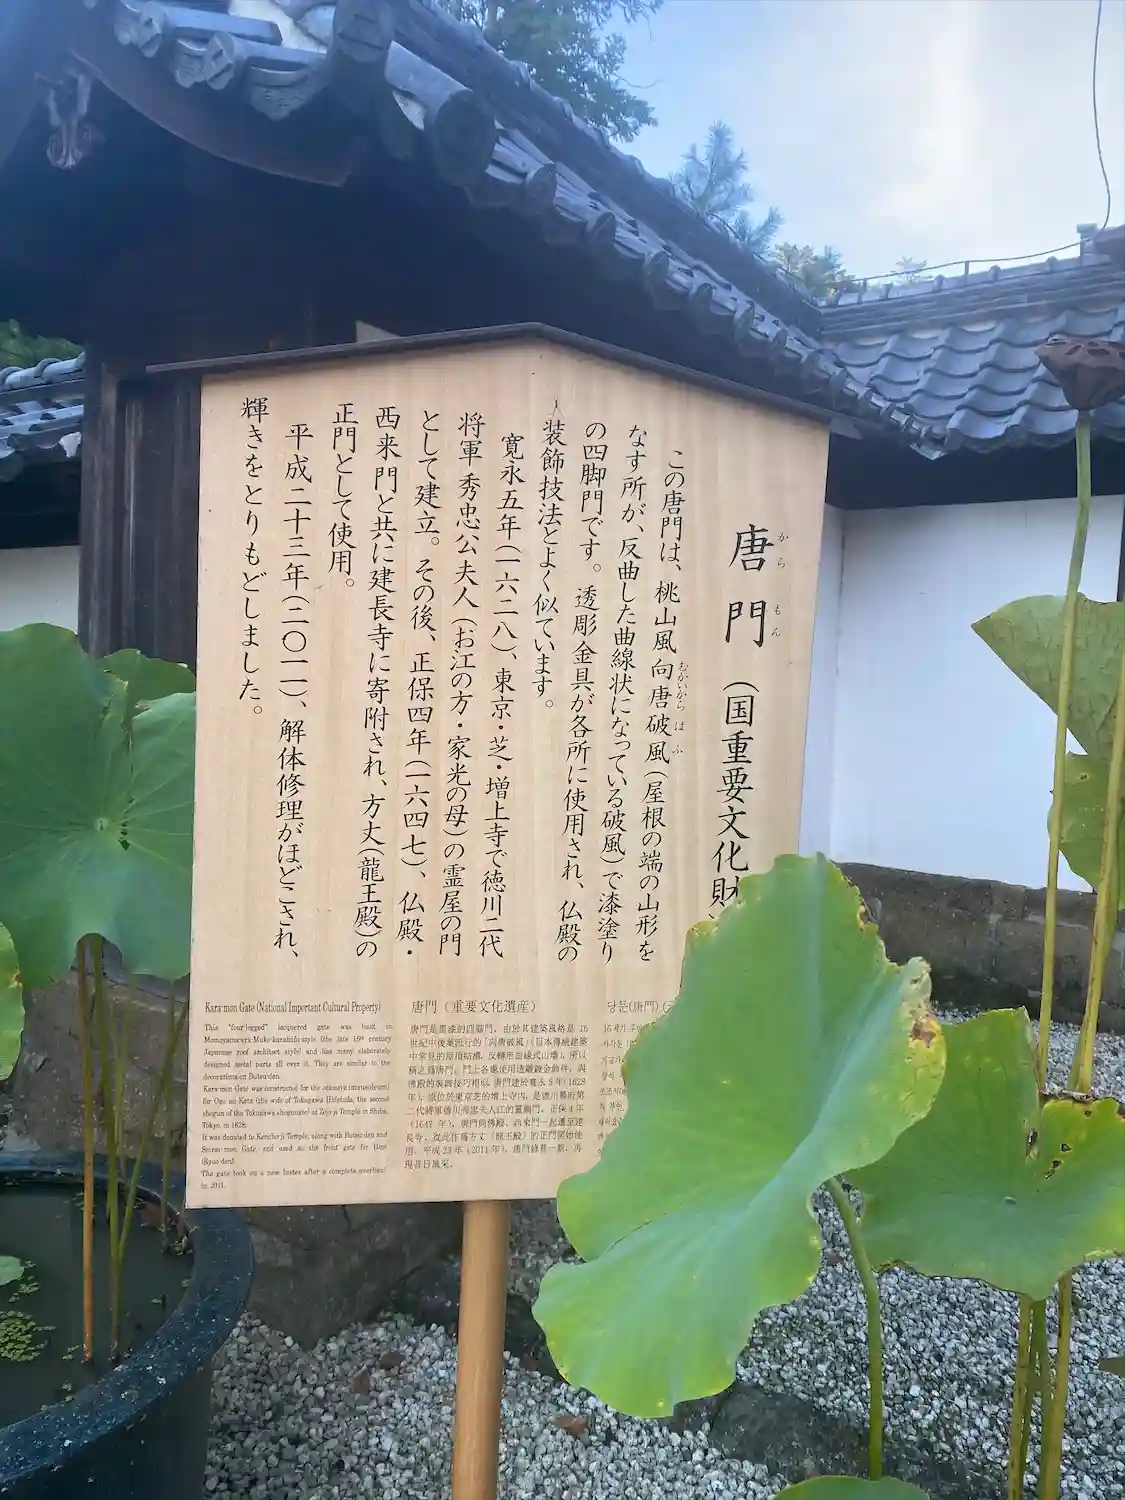 唐門（国重要文化財
から もん
この唐門は、桃山風向唐破風（屋根の端の山形を
むかいから は ふ
なす所が、反曲した曲線状になっている破風）で漆塗り
の四脚門です。透彫金具が各所に使用され、仏殿の
装飾技法とよく似ています。
寛永五年（一六二八）、東京・芝・増上寺で徳川二代
将軍秀忠公夫人（お江の方・家光の母）の霊屋の門
として建立。その後、正保四年（一六四七）、仏殿・
西来門と共に建長寺に寄附され、方丈（龍王殿）の
正門として使用。
平成二十三年（二〇一一）、解体修理がほどこされ、
輝きをとりもどしました。
Kara-mon Gate (National Important Cultural Property)
This "four-legged" lacquered gate was built in
Momoyama-style Muko-karahafu-style (the late 16th century
Japanese roof architect style) and has many elaborately
designed metal parts all over it. They are similar to the
decorations on Butsu-den.
Kara-mon Gate was constructed for the otamaya (mausoleum)
for Ogo no Kata (the wife of Tokugawa Hidetada, the second
shogun of the Tokugawa shogunate) at Zojo-ji Temple in Shiba,
Tokyo, in 1628.
It was donated to Kencho-ji Temple, along with Butsu-den and
Gate, and used as the front gate for Hojo
(Ryuo-den).
The gate took on a new luster after a complete overhaul
in 2011.
唐門（重要文化遺産）
唐門是黑漆的四腳門，由於其建築風格是 16
世紀中後葉流行的「向唐破風」（日本傳統建築
中常見的屋頂結構，反轉形曲線式山墻），所以
稱之為唐門。門上各處使用透雕鍍金飾件，與
佛殿的裝飾技巧相似。唐門建於寬永 5 年（1628
年），原位於東京芝的增上寺內，是德川幕府第
二代將軍德川秀忠夫人江的靈廟門。正保 4 年
（1647 年），唐門與佛殿、西來門一起遷至建
長寺，從此作為方丈（龍王殿）的正門開始使
用。平成 23 年（2011 年），唐門修葺一新，再
現昔日風采。
당문(唐門)
16 세기